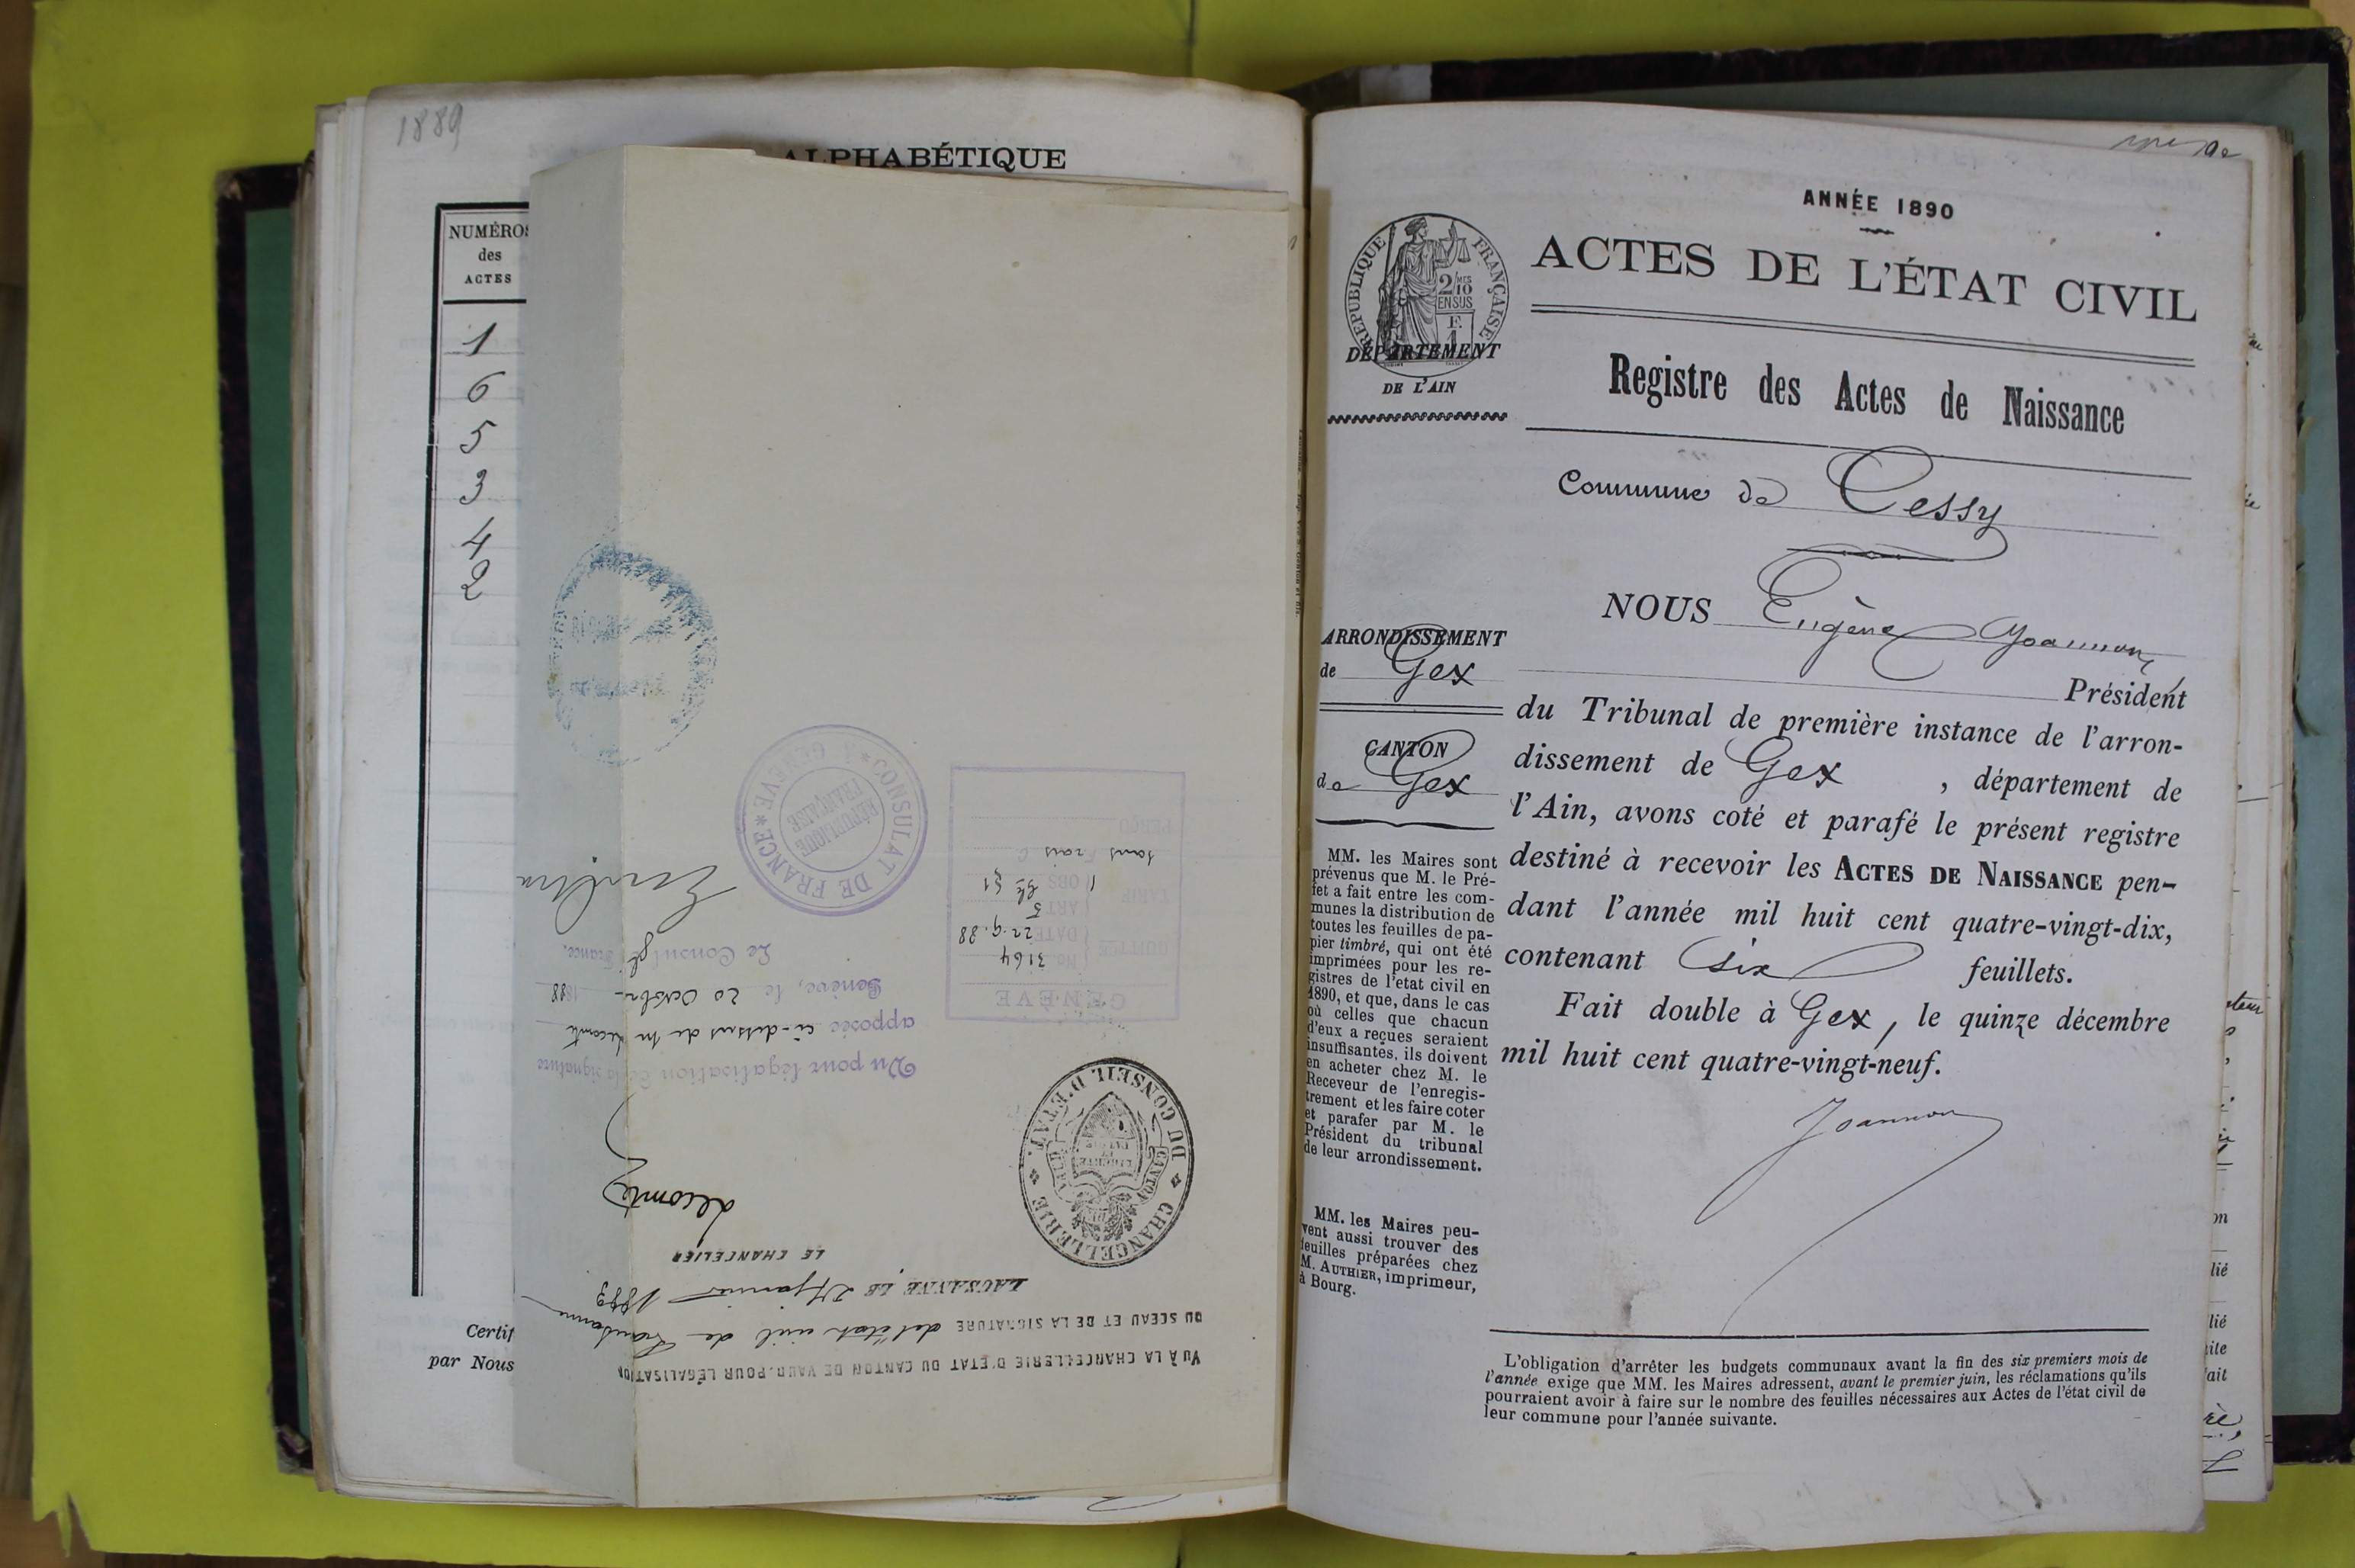 1889
ALPHABÉTIQUE
NUMÉROS
des
ACTES
1
6
5
3
4
2
Certif
par Nous
VU À LA CHANCELLERIE D'ETAT DU CANTON DE VAUD, POUR LÉGALISATION
DU SCEAU ET DE LA SIGNATURE de l'état civil de Lausanne
LAUSANNE, LE janvier 1889
LE CHANCELIER
Lecomte
CHANCELLERIE DU CONSEIL D'ETAT
CANTON DE VAUD
LIBERTÉ ET PATRIE
Vu pour légalisation de la signature
apposée ci-dessus de M Lecomte
Genève, le 20 Octobre 1888
Le Consul gl France,
CONSULAT DE FRANCE * À GENÈVE *
RÉPUBLIQUE
FRANÇAISE
GENÈVE
QUITTCE
No 3164
DATE 22.9.88
ART 5
TARIF
OBS
sans frais
PERÇU
ANNÉE 1890
ACTES DE L'ÉTAT CIVIL
RÉPUBLIQUE FRANÇAISE
2/10 MES
EN SUS
F.
1
DÉPARTEMENT
DE L'AIN
Registre des Actes de Naissance
Commune de Cessy
NOUS Eugène Joannon
Président
du Tribunal de première instance de l'arron-
dissement de Gex , département de
l'Ain, avons coté et parafé le présent registre
destiné à recevoir les ACTES DE NAISSANCE pen-
dant l'année mil huit cent quatre-vingt-dix,
contenant six feuillets.
Fait double à Gex, le quinze décembre
mil huit cent quatre-vingt-neuf.
Joannon
ARRONDISSEMENT
de Gex
CANTON
de Gex
MM. les Maires sont
prévenus que M. le Pré-
fet a fait entre les com-
munes la distribution de
toutes les feuilles de pa-
pier timbré, qui ont été
imprimées pour les re-
gistres de l'etat civil en
1890, et que, dans le cas
où celles que chacun
d'eux a reçues seraient
insuffisantes, ils doivent
en acheter chez M. le
Receveur de l'enregis-
trement et les faire coter
et parafer par M. le
Président du tribunal
de leur arrondissement.
MM. les Maires peu-
vent aussi trouver des
feuilles préparées chez
M. AUTHIER, imprimeur,
à Bourg.
L'obligation d'arrêter les budgets communaux avant la fin des six premiers mois de
l'année exige que MM. les Maires adressent, avant le premier juin, les réclamations qu'ils
pourraient avoir à faire sur le nombre des feuilles nécessaires aux Actes de l'état civil de
leur commune pour l'année suivante.